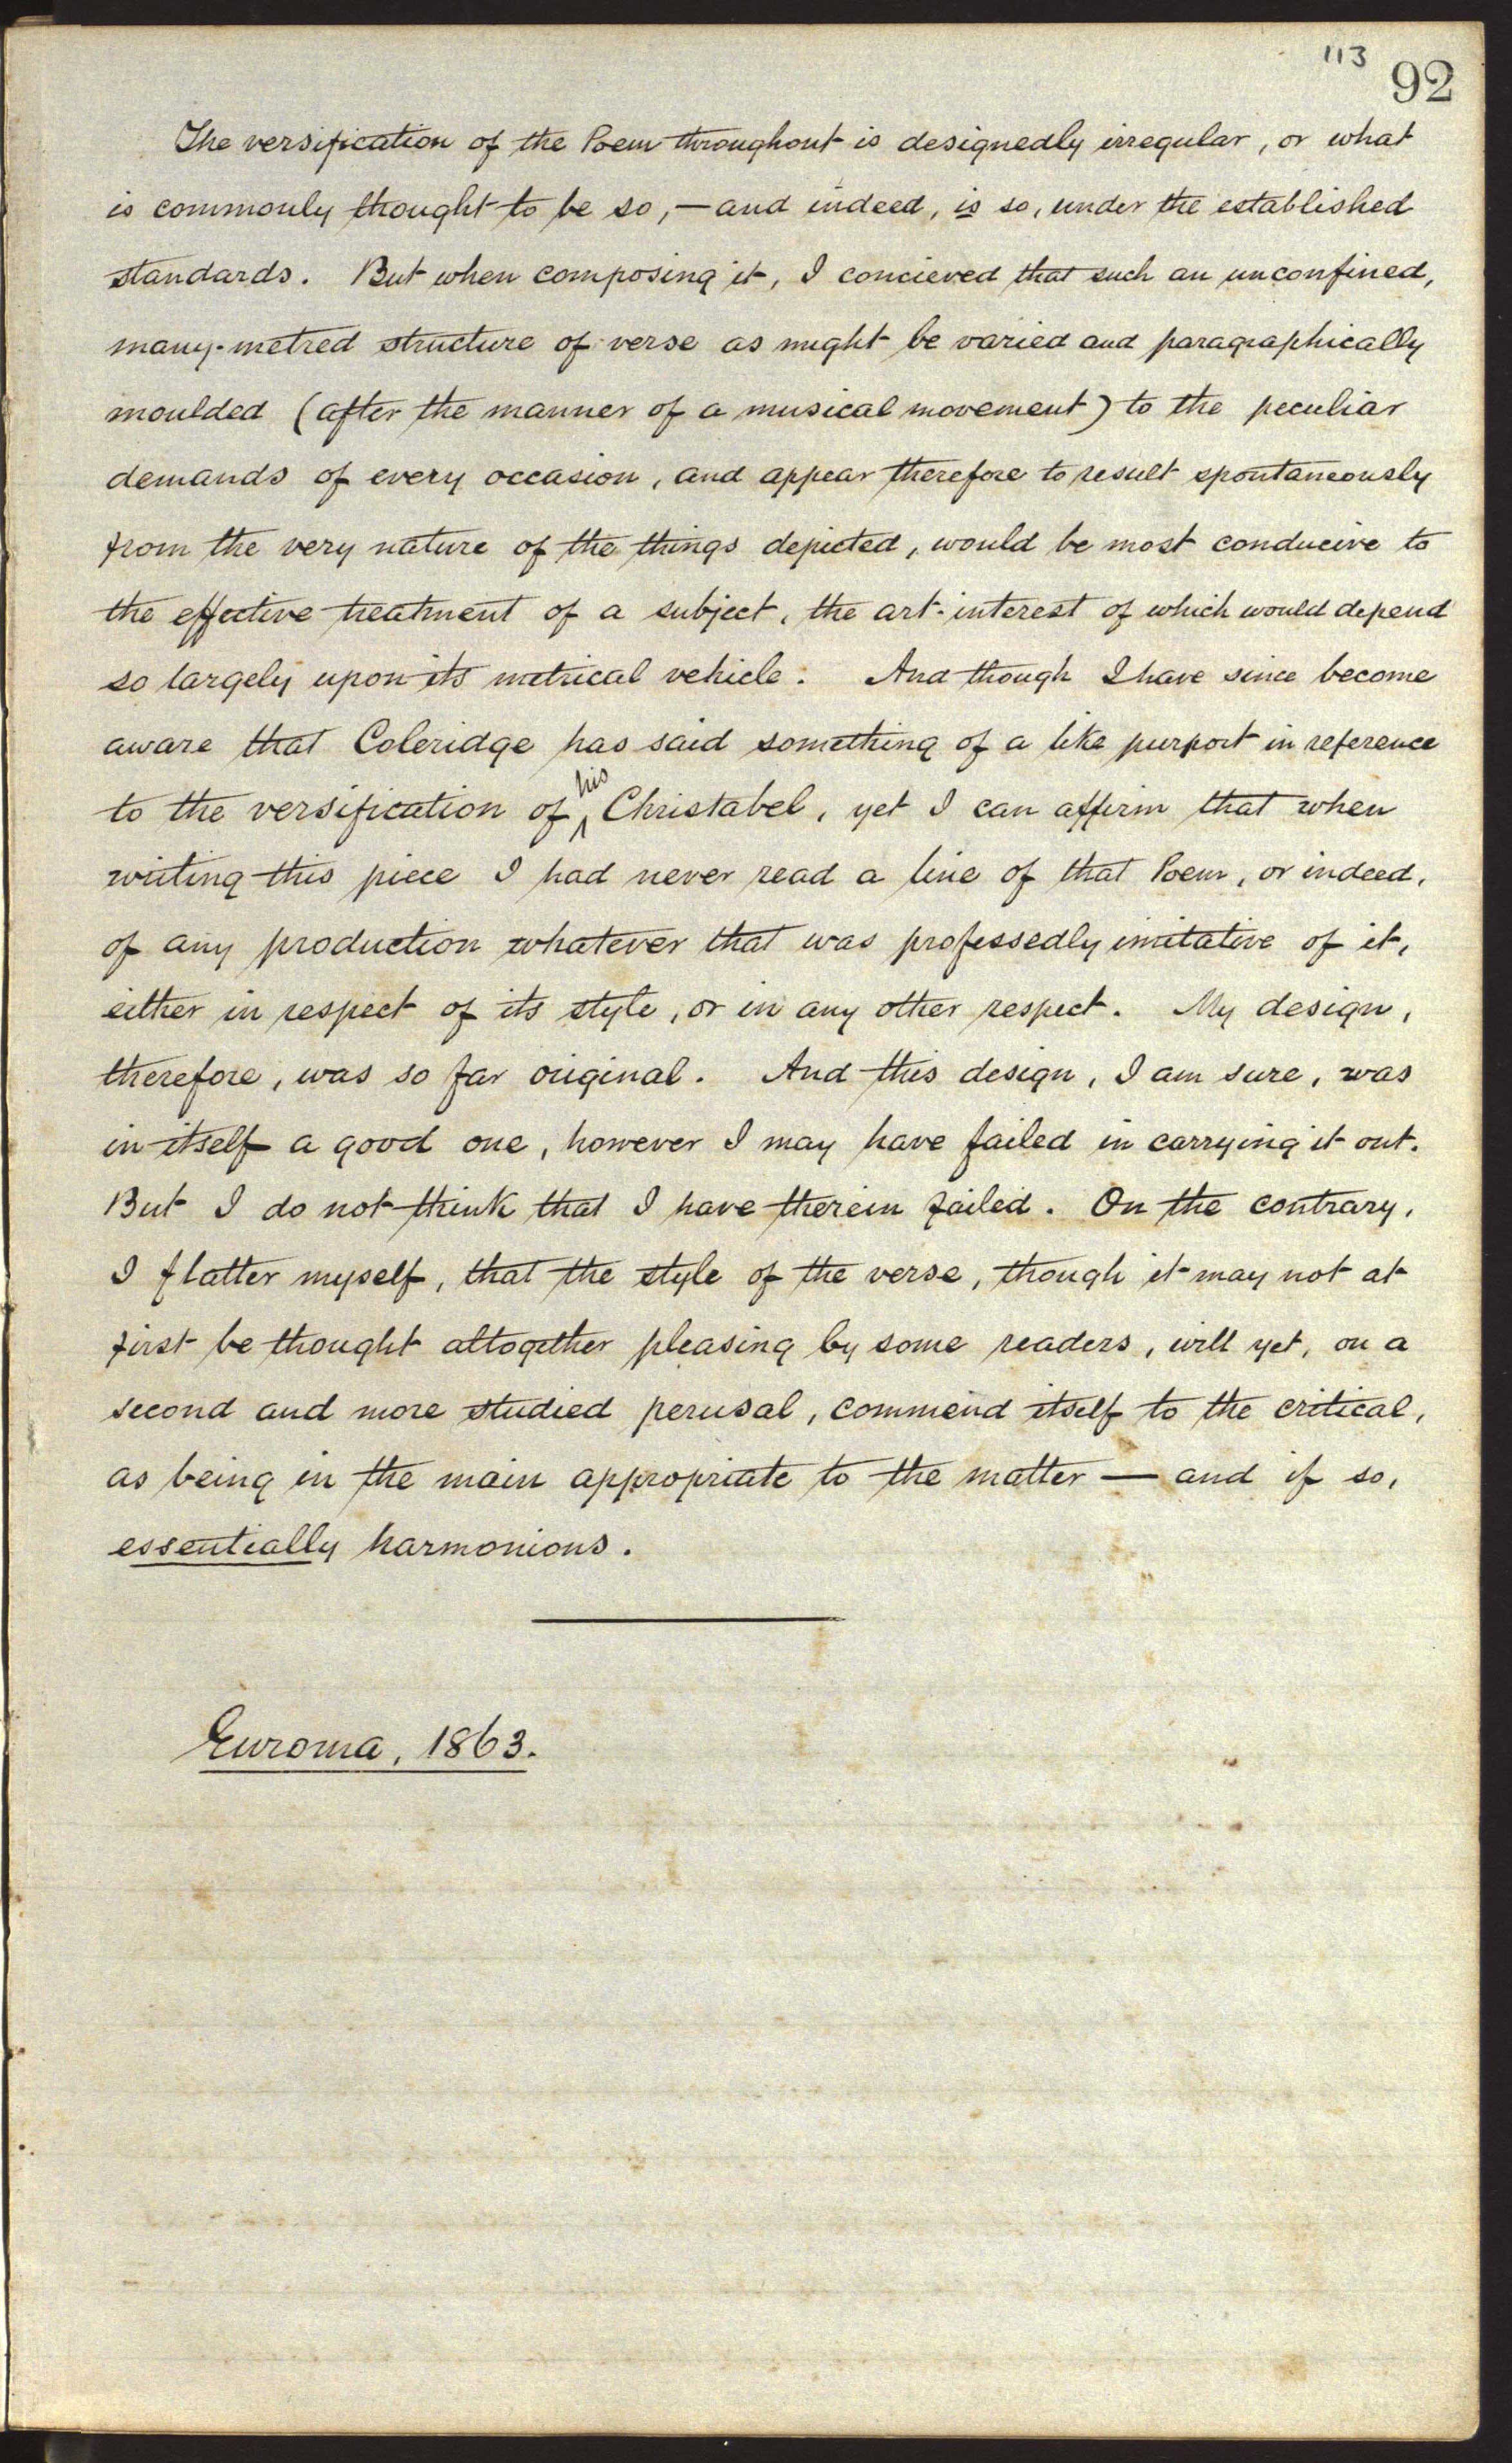 113
92
The versification of the Poem throughout is designedly irregular, or what
is commonly thought to be so,—and indeed, is so, under the established
standards. But when composing it, I concieved that such an unconfined,
many-metred structure of verse as might be varied and paragraphically
moulded (after the manner of a musical movement) to the peculiar
demands of every occasion, and appear therefore to result spontaneously
from the very nature of the things depicted, would be most conducive to
the effective treatment of a subject, the art-interest of which would depend
so largely upon its metrical vehicle. And though I have since become
aware that Coleridge has said something of a like purport in reference
to the versification of his Christabel, yet I can affirm that when
writing this piece I had never read a line of that Poem, or indeed,
of any production whatever that was professedly imitative of it,
either in respect of its style, or in any other respect. My design,
therefore, was so far original. And this design, I am sure, was
in itself a good one, however I may have failed in carrying it out.
But I do not think that I have therein failed. On the contrary,
I flatter myself, that the style of the verse, though it may not at
first be thought altogether pleasing by some readers, will yet, on a
second and more studied perusal, commend itself to the critical,
as being in the main appropriate to the matter — and if so,
essentially harmonious.
Euroma, 1863.